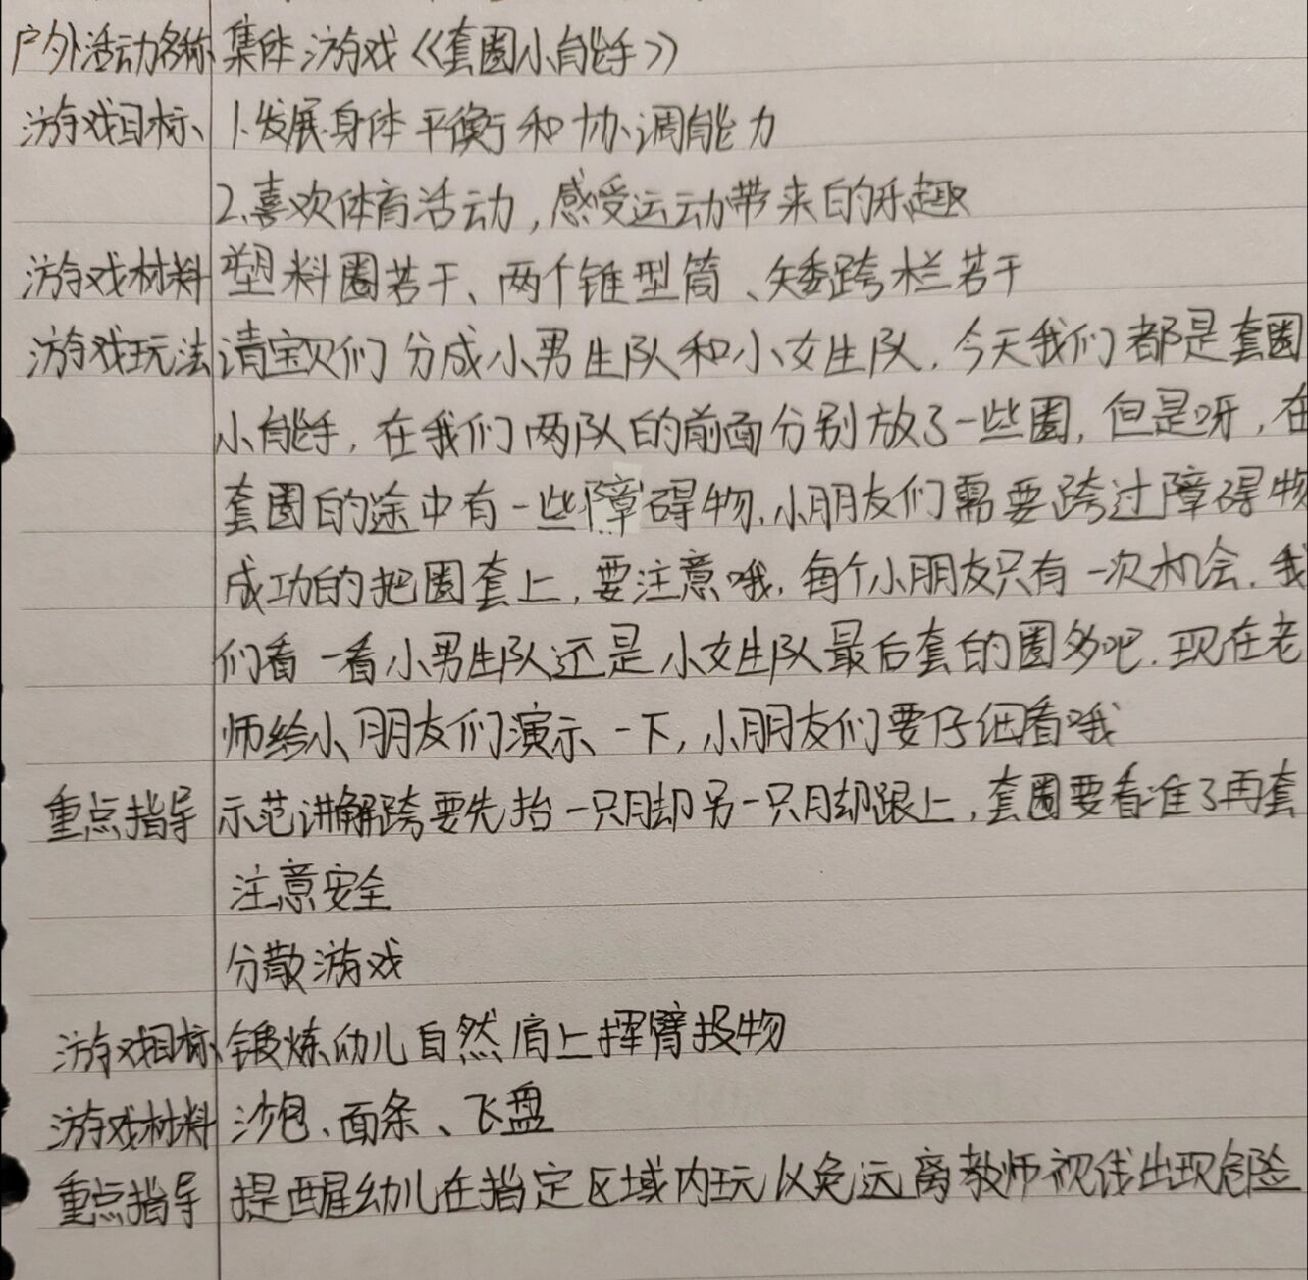 户外活动名称 集体游戏《套圈小能手》
游戏目标 1.发展身体平衡和协调能力
2.喜欢体育活动,感受运动带来的乐趣
游戏材料 塑料圈若干、两个锥型筒、矮跨栏若干
游戏玩法 请宝贝们分成小男生队和小女生队,今天我们都是套圈
小能手,在我们两队的前面分别放了一些圈,但是呀,在
套圈的途中有一些障碍物,小朋友们需要跨过障碍物
成功的把圈套上,要注意哦,每个小朋友只有一次机会,我
们看一看小男生队还是小女生队最后套的圈多吧.现在老
师给小朋友们演示一下,小朋友们要仔细看哦
重点指导 示范讲解跨要先抬一只脚另一只脚跟上,套圈要看准了再套
注意安全
分散游戏
游戏目标 锻炼幼儿自然肩上挥臂投物
游戏材料 沙包、面条、飞盘
重点指导 提醒幼儿在指定区域内玩以免远离教师视线出现危险